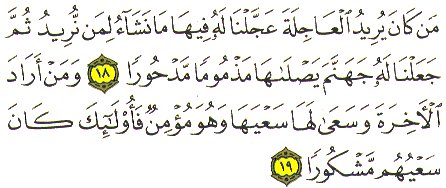 مَّن كَانَ يُرِيدُ ٱلۡعَاجِلَةَ عَجَّلۡنَا لَهُۥ فِيهَا مَا نَشَآءُ لِمَن نُّرِيدُ ثُمَّ
جَعَلۡنَا لَهُۥ جَهَنَّمَ يَصۡلَىٰهَا مَذۡمُومٗا مَّدۡحُورٗا ١٨ وَمَنۡ أَرَادَ
ٱلۡأٓخِرَةَ وَسَعَىٰ لَهَا سَعۡيَهَا وَهُوَ مُؤۡمِنٞ فَأُوْلَٰٓئِكَ كَانَ
سَعۡيُهُم مَّشۡكُورٗا ١٩